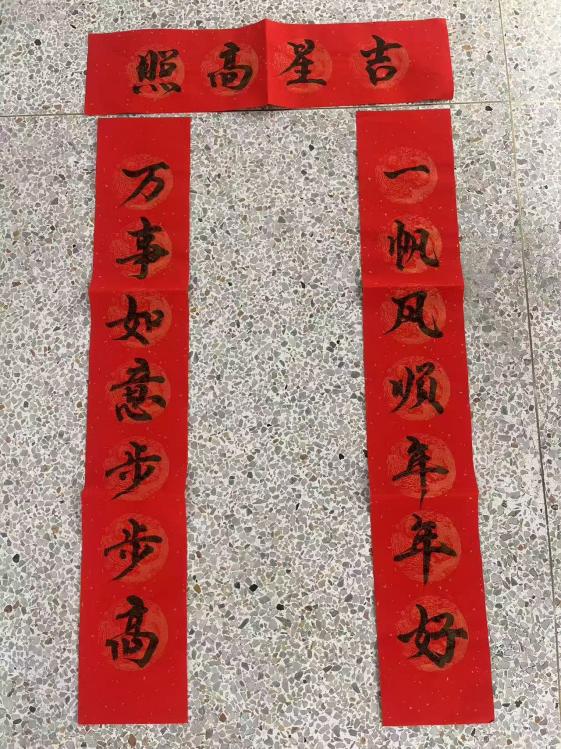 吉星高照
一帆风顺年年好
万事如意步步高